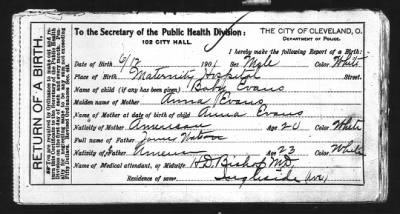 RETURN OF A BIRTH.
To the Secretary of the Public Health Division:
102 CITY HALL.
THE CITY OF CLEVELAND, O.
DEPARTMENT OF POLICE.
I hereby make the following Report of a Birth:
Date of Birth 6/12 1901 Sex Male Color White
Place of Birth Maternity Hospital Street.
Name of child (if any has been given) Baby Evans
Maiden name of Mother Anna Evans
Name of Mother at date of birth of child Anna Evans
Nativity of Mother American Age 20 Color White
Full name of Father James Watson
Nativity of Father Amern Age 23 Color White
Name of Medical attendant, or Midwife H.D. Bishop M.D.
Residence of same Ingleside Ave